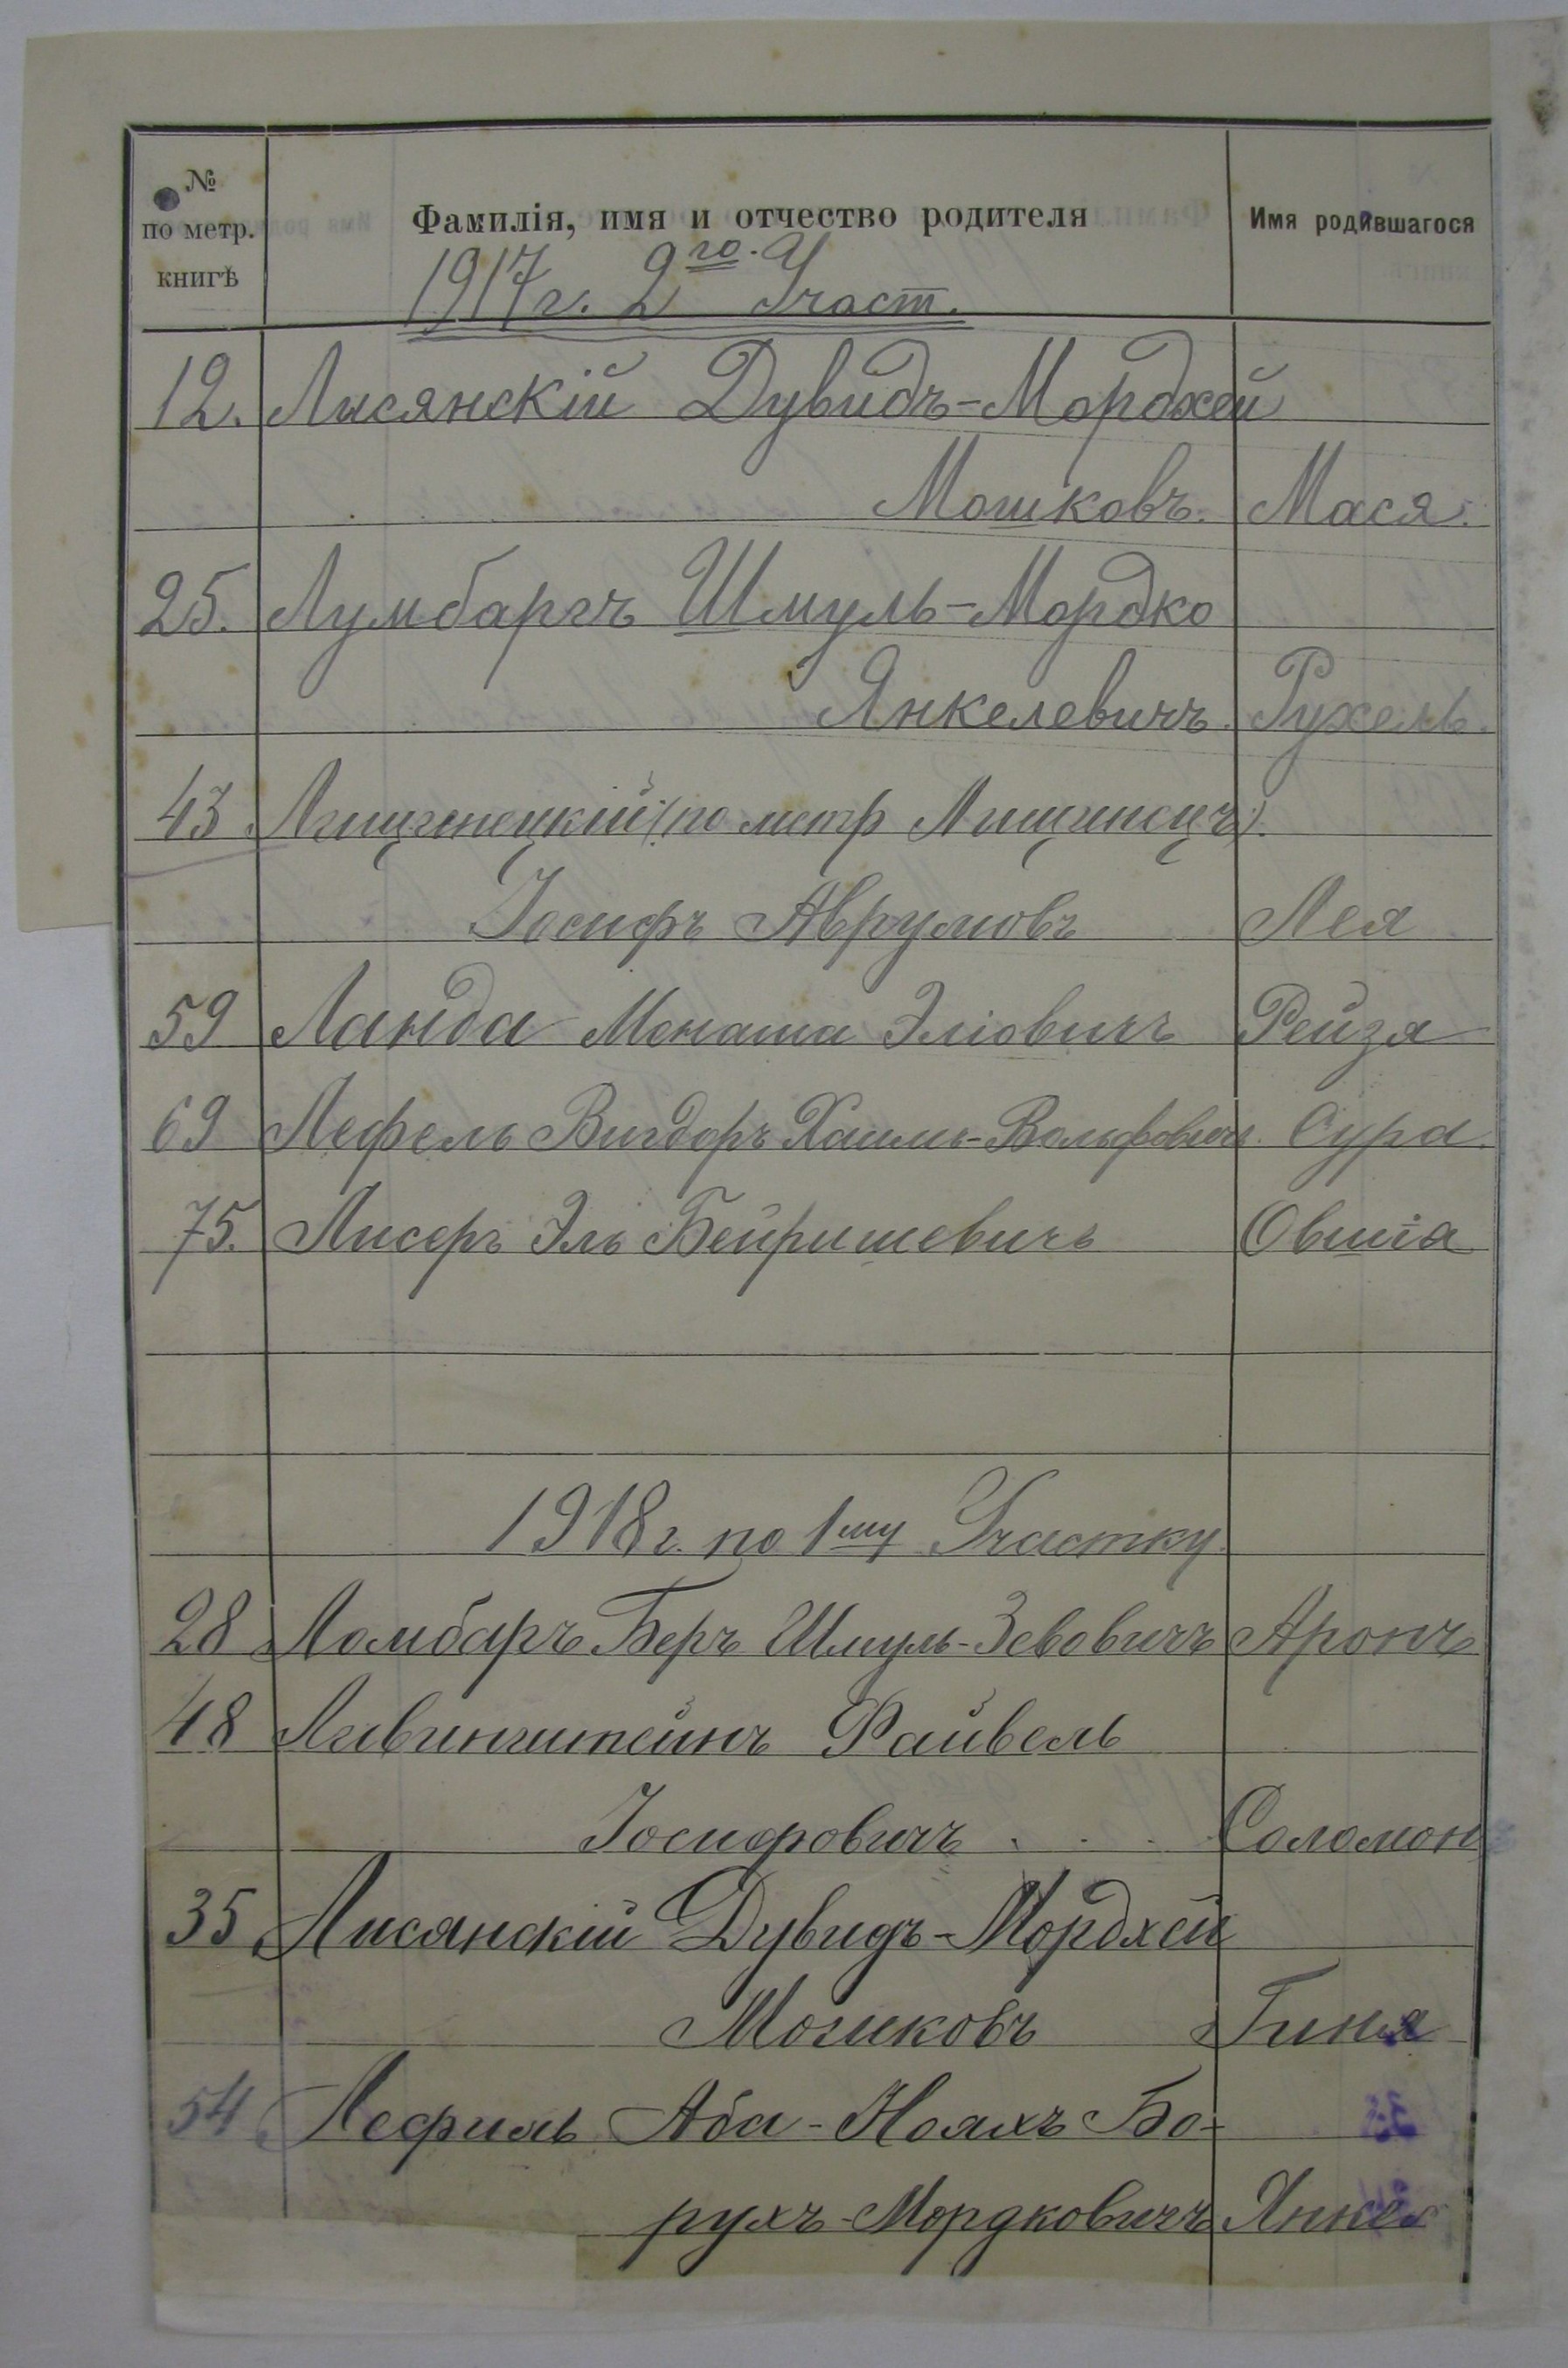 № по метр. книгѣ Фамилія, имя и отчество родителя Имя родившагося
1917г. 2го. Участ.
12. Лисянскій Дувидъ-Мордхей
Мошковъ. Мася.
25. Лумбаргъ Шмуль-Мордко
Янкелевичъ. Рухель.
43 Лищинецкій (по метр Лищинецъ).
Іосифъ Аврумовъ Лея
59 Ланда Монаша Эліовичъ Рейзя
69 Лефель Вигдоръ Хаимъ-Вольфовичъ. Сура.
75. Лисеръ Эль Бейришевичъ Овшіа
1918г. по 1му Участку.
28 Ломбаръ Беръ Шмуль-Зевовичъ Аронъ
48 Ливинштейнъ Файвель
Іосифовичъ . . . Соломонъ
35 Лисянскій Дувидъ-Мордхей
Мошковъ Гиня
54 Лефиль Аба-Нояхъ Бо-
рухъ-Мордковичъ